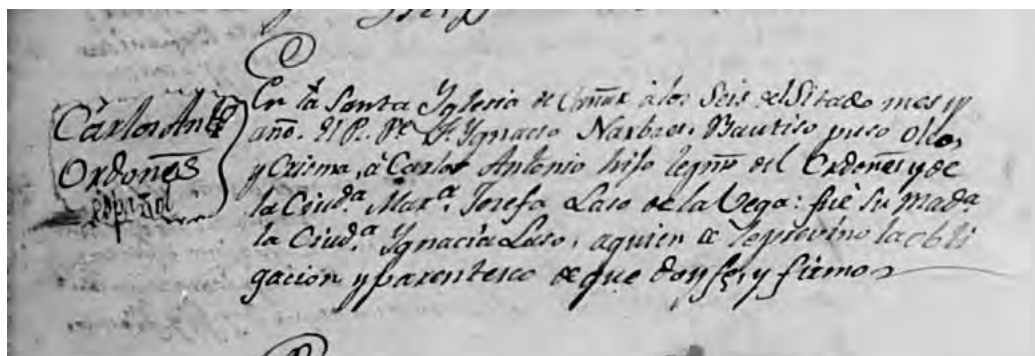 Carlos Antº
Ordoñes
español
En la Santa Yglesia de à los Seis del Sitado mes y
año. El P. Pe. Fr. Ygnacio Narbaes, Bautiso puso oleo,
y Crisma, à Carlos Antonio hijo legmo del Ordoñes y de
la Ciud.a Mar.a Josefa Laso de la Vega: fuè Su Mad.a
la Ciud.a Ygnacia Laso, aquien se leprevino la obli
gacion y parentesco de que doy fe, y firmo